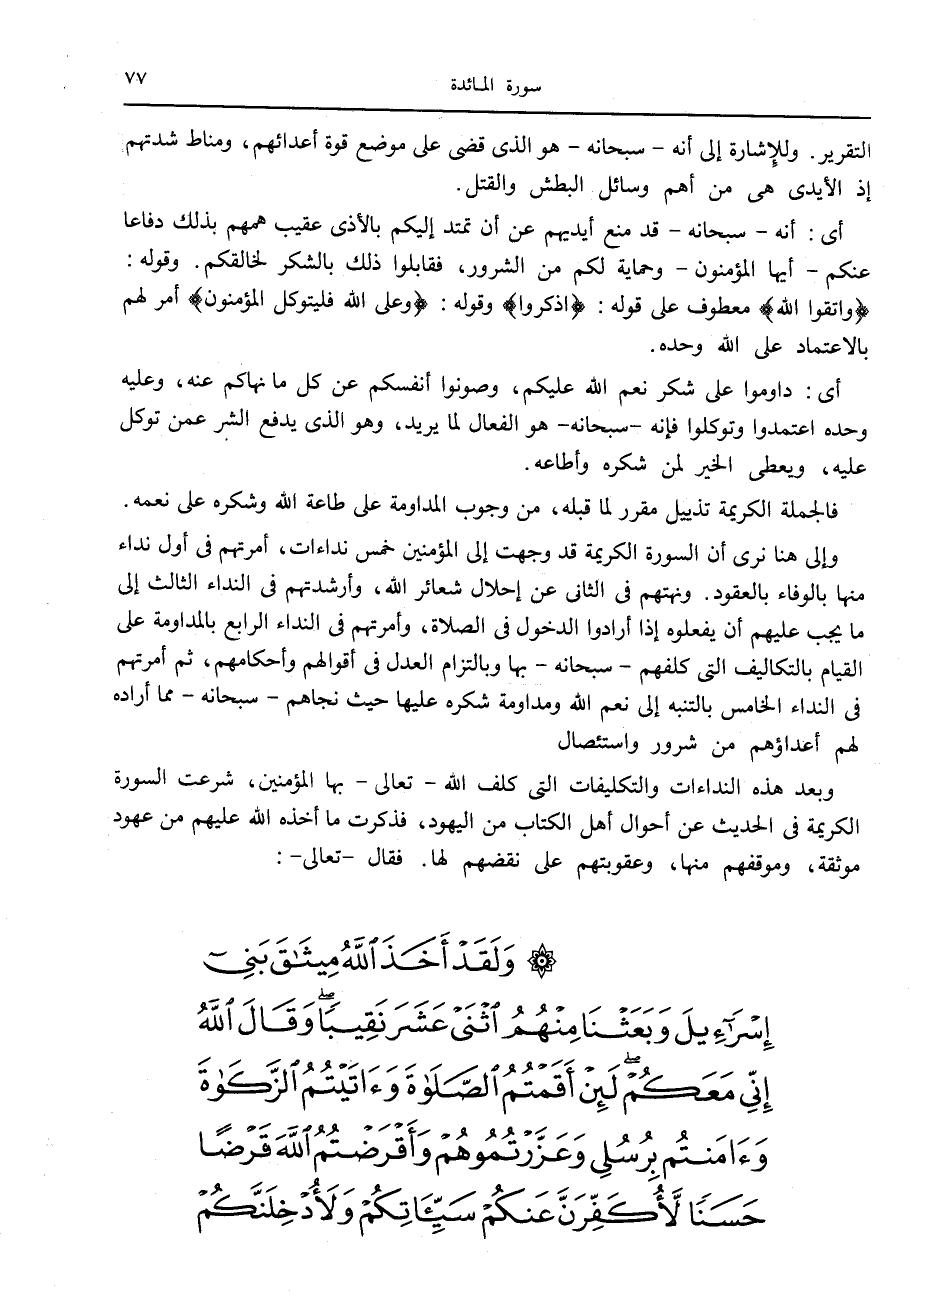 سورة المائدة ٧٧
التقرير. وللإشارة إلى أنه - سبحانه - هو الذى قضى على موضع قوة أعدائهم، ومناط شدتهم
إذ الأيدى هى من أهم وسائل البطش والقتل.
أى : أنه - سبحانه - قد منع أيديهم عن أن تمتد إليكم بالأذى عقيب همهم بذلك دفاعا
عنكم - أيها المؤمنون - وحماية لكم من الشرور، فقابلوا ذلك بالشكر لخالقكم. وقوله :
﴿واتقوا الله﴾ معطوف على قوله : ﴿اذكروا﴾ وقوله : ﴿وعلى الله فليتوكل المؤمنون﴾ أمر لهم
بالاعتماد على الله وحده.
أى : داوموا على شكر نعم الله عليكم، وصونوا أنفسكم عن كل ما نهاكم عنه، وعليه
وحده اعتمدوا وتوكلوا فإنه -سبحانه- هو الفعال لما يريد، وهو الذى يدفع الشر عمن توكل
عليه، ويعطى الخير لمن شكره وأطاعه.
فالجملة الكريمة تذييل مقرر لما قبله، من وجوب المداومة على طاعة الله وشكره على نعمه.
وإلى هنا نرى أن السورة الكريمة قد وجهت إلى المؤمنين خمس نداءات، أمرتهم فى أول نداء
منها بالوفاء بالعقود. ونهتهم فى الثانى عن إحلال شعائر الله، وأرشدتهم فى النداء الثالث إلى
ما يجب عليهم أن يفعلوه إذا أرادوا الدخول فى الصلاة، وأمرتهم فى النداء الرابع بالمداومة على
القيام بالتكاليف التى كلفهم - سبحانه - بها وبالتزام العدل فى أقوالهم وأحكامهم، ثم أمرتهم
فى النداء الخامس بالتنبه إلى نعم الله ومداومة شكره عليها حيث نجاهم - سبحانه - مما أراده
لهم أعداؤهم من شرور واستئصال
وبعد هذه النداءات والتكليفات التى كلف الله - تعالى - بها المؤمنين، شرعت السورة
الكريمة فى الحديث عن أحوال أهل الكتاب من اليهود، فذكرت ما أخذه الله عليهم من عهود
موثقة، وموقفهم منها، وعقوبتهم على نقضهم لها. فقال -تعالى- :
۞ وَلَقَدْ أَخَذَ ٱللَّهُ مِيثَٰقَ بَنِىٓ
إِسْرَٰٓءِيلَ وَبَعَثْنَا مِنْهُمُ ٱثْنَىْ عَشَرَ نَقِيبًا ۖ وَقَالَ ٱللَّهُ
إِنِّى مَعَكُمْ ۖ لَئِنْ أَقَمْتُمُ ٱلصَّلَوٰةَ وَءَاتَيْتُمُ ٱلزَّكَوٰةَ
وَءَامَنتُم بِرُسُلِى وَعَزَّرْتُمُوهُمْ وَأَقْرَضْتُمُ ٱللَّهَ قَرْضًا
حَسَنًا لَّأُكَفِّرَنَّ عَنكُمْ سَيِّـَٔاتِكُمْ وَلَأُدْخِلَنَّكُمْ